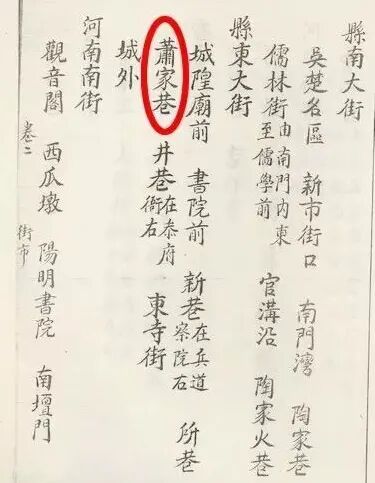 縣南大街
吳楚名區 新市街口 南門灣 陶家巷
儒林街由南門內東至儒學前 官溝沿 陶家火巷
縣東大街
城隍廟前 書院前 新巷在兵道察院右 所巷
蕭家巷 井巷在泰府衙右 東寺街
城外
河南南街
觀音閣 西瓜墩 陽明書院 南壇門
卷二 街市